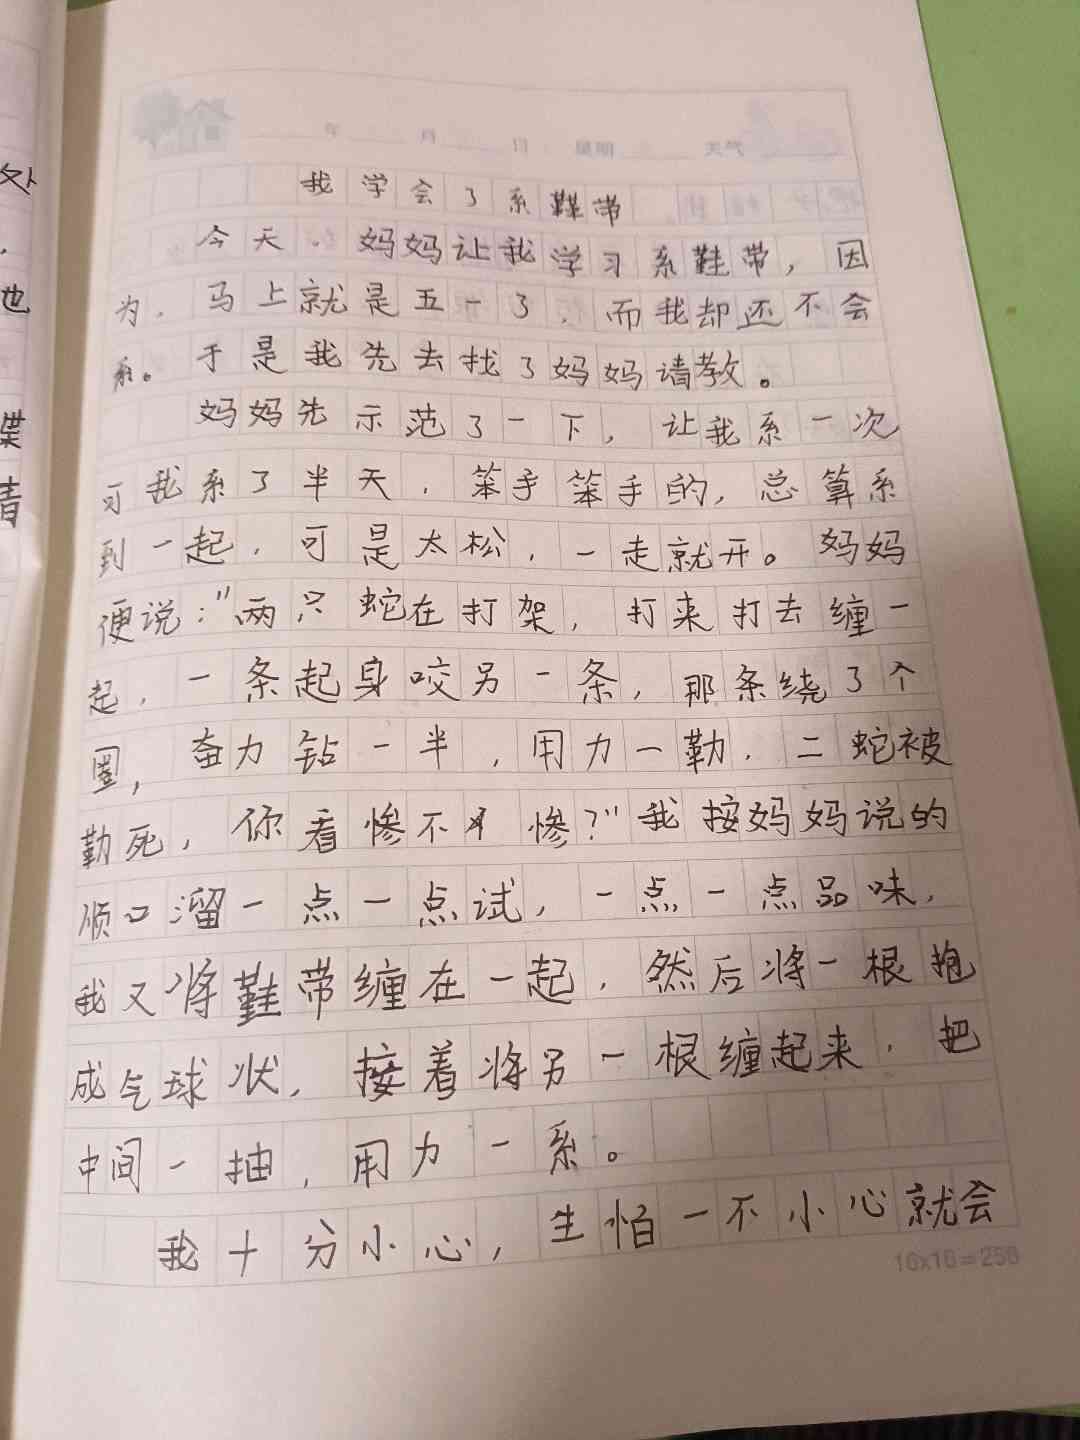 年 月 日 星期 天气
我学会了系鞋带
今天，妈妈让我学习系鞋带，因
为，马上就是五一了，而我却还不会
系。于是我先去找了妈妈请教。
妈妈先示范了一下，让我系一次
可我系了半天，笨手笨手的，总算系
到一起，可是太松，一走就开。妈妈
便说："两只蛇在打架，打来打去缠一
起，一条起身咬另一条，那条绕了个
圈，奋力钻一半，用力一勒，二蛇被
勒死，你看惨不惨？"我按妈妈说的
顺口溜一点一点试，一点一点品味，
我又将鞋带缠在一起，然后将一根抱
成气球状，接着将另一根缠起来，把
中间一抽，用力一系。
我十分小心，生怕一不小心就会
16x16=256
处
，
也
青